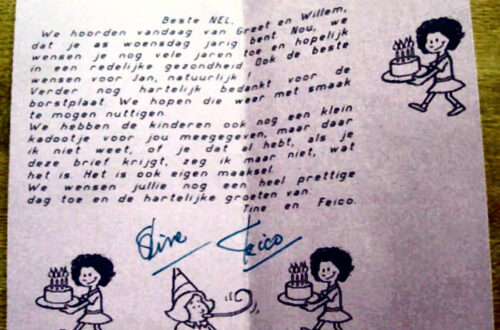 Beste NEL,
We hoorden vandaag van Greet en Willem,
dat je as woensdag jarig bent. Nou, we
wensen je nog vele jaren toe en hopelijk
in een redelijke gezondheid! Ook de beste
wensen voor Jan, natuurlijk!
Verder nog hartelijk bedankt voor de
borstplaat. We hopen die weer met smaak
te mogen nuttigen.
We hebben de kinderen ook nog een klein
kadootje voor jou meegegeven, maar daar
ik niet weet, of je dat al hebt, als je
deze brief krijgt, zeg ik maar niet, wat
het is. Het is ook eigen maaksel.
We wensen jullie nog een heel prettige
dag toe en de hartelijke groeten van
Tine en Feico.
Tine Feico